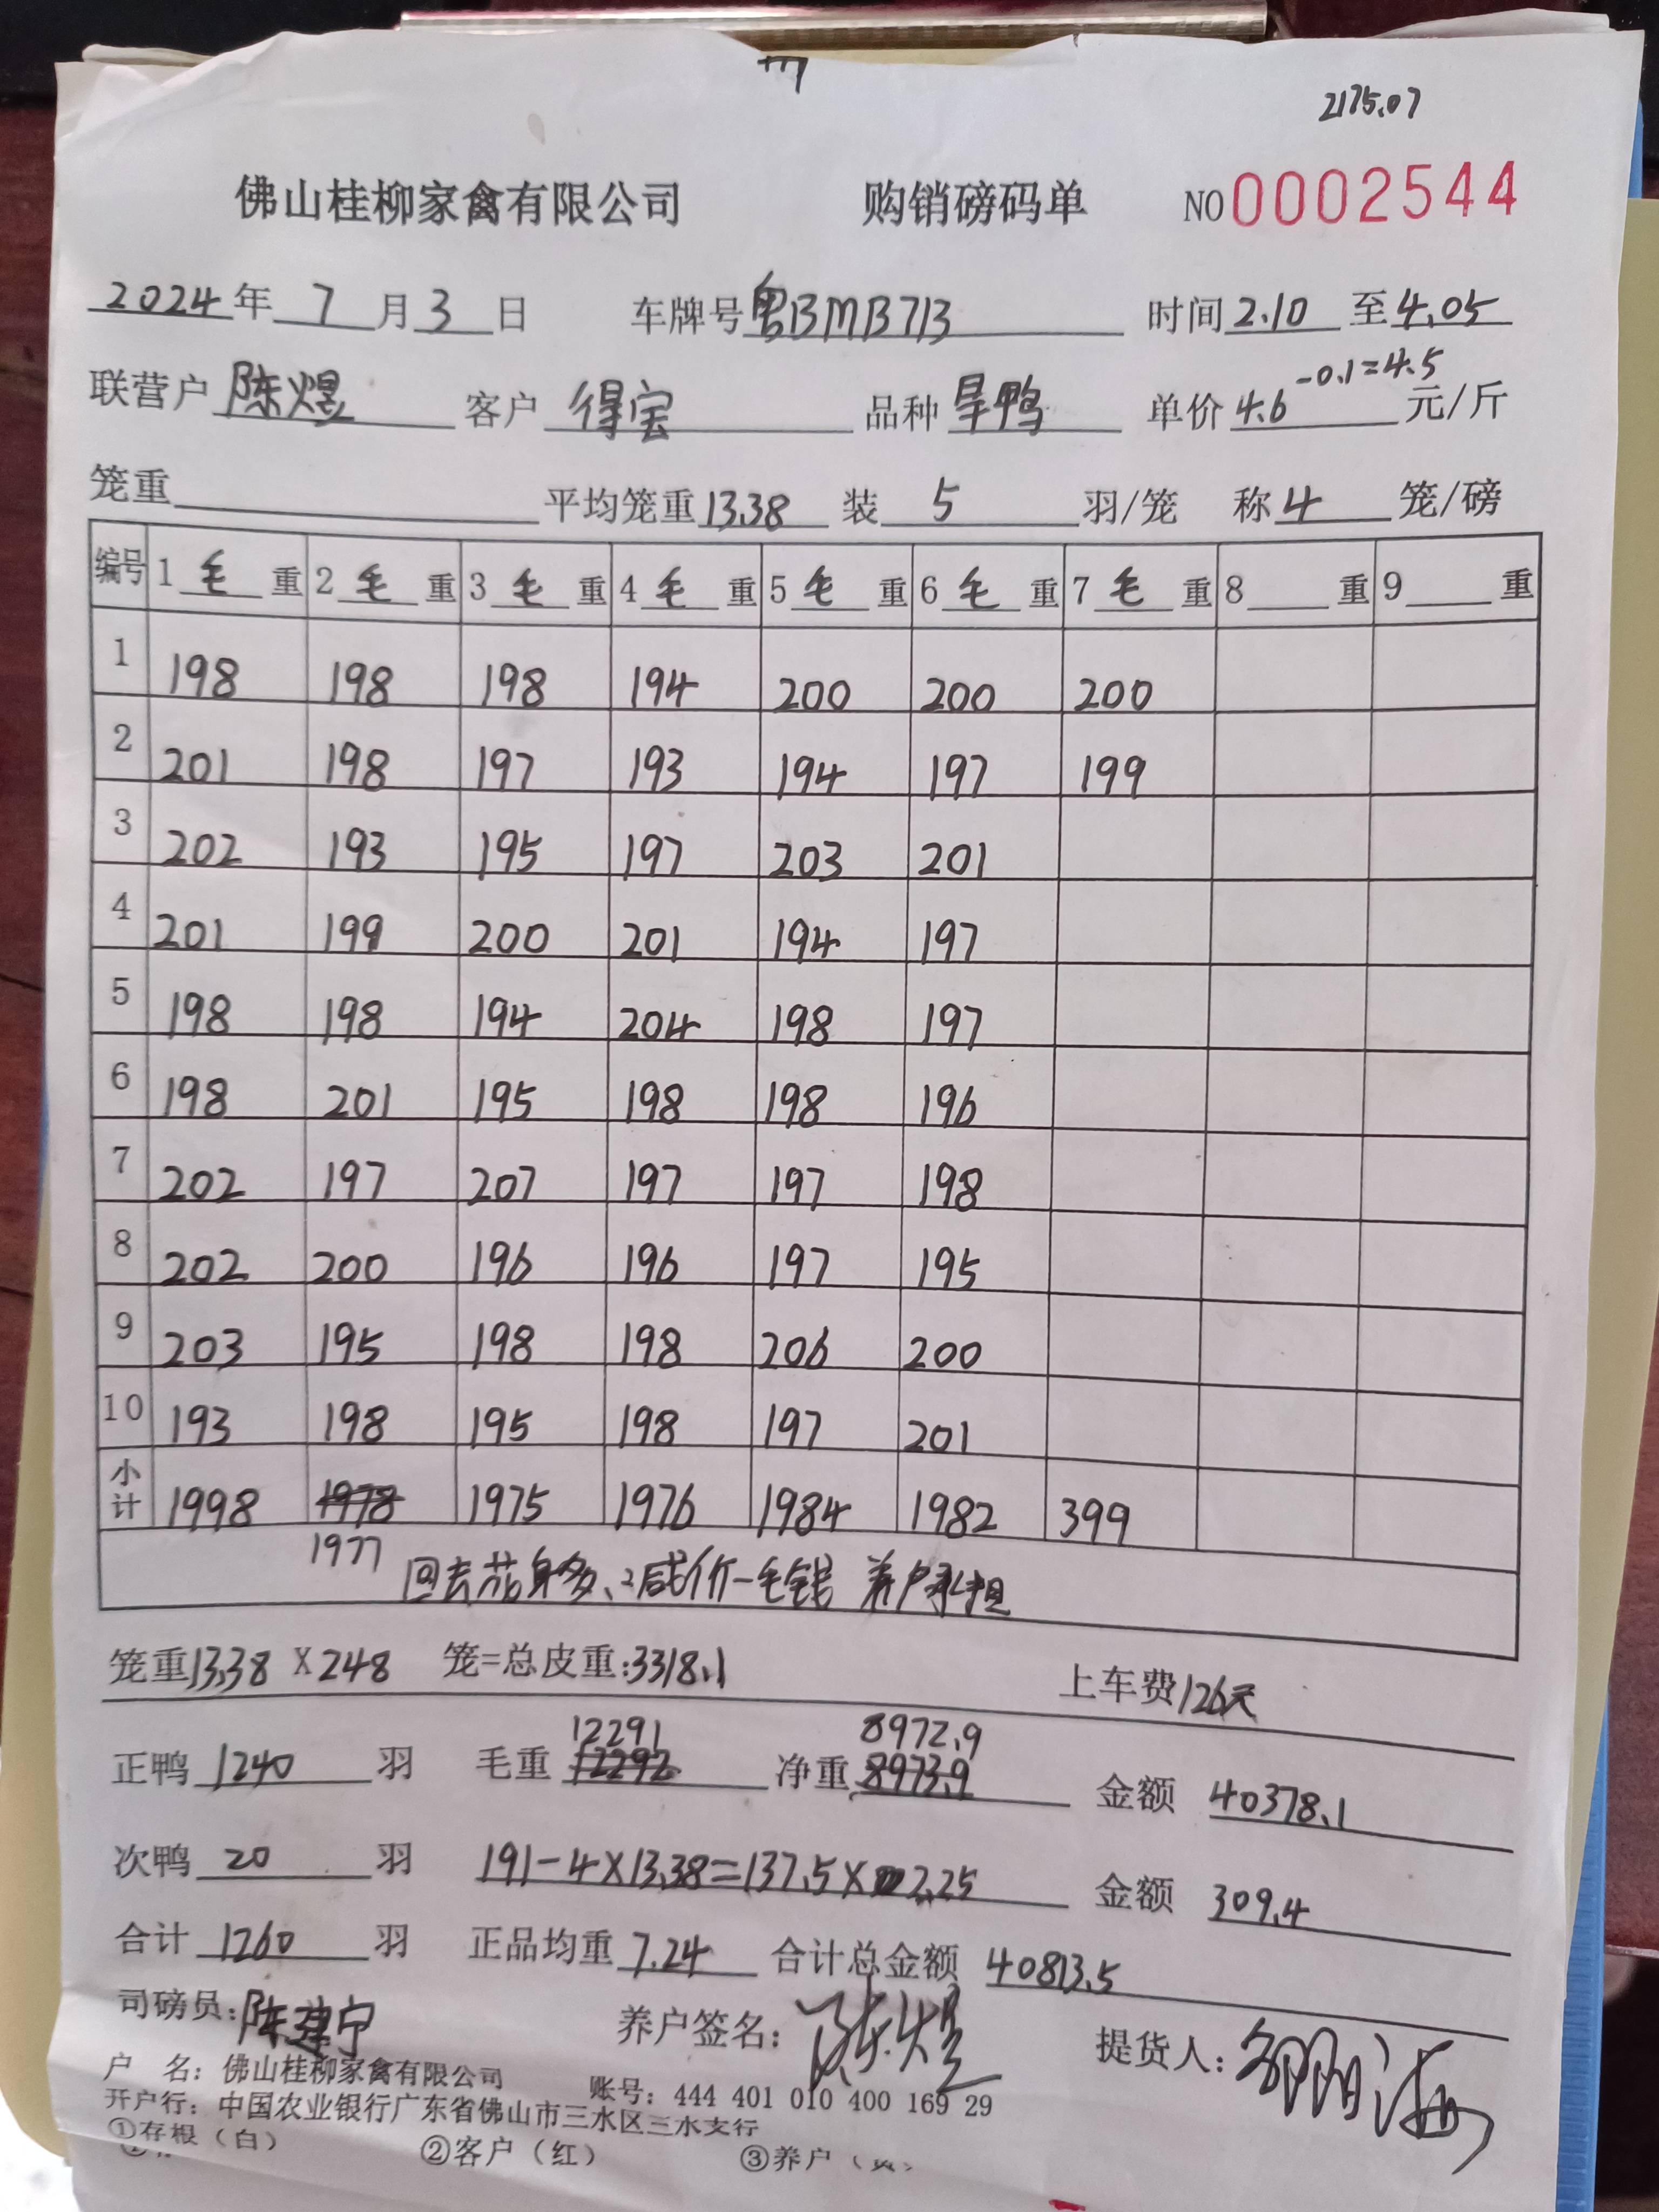 2175.07
佛山桂柳家禽有限公司 购销磅码单 NO 0002544
2024年 7 月 3 日 车牌号 粤BMB71B 时间 2.10 至 4.05
联营户 陈煜 客户 得宝 品种 旱鸭 单价 4.6 -0.1=4.5 元/斤
笼重 平均笼重 13.38 装 5 羽/笼 称 4 笼/磅
编号 1 毛 重 2 毛 重 3 毛 重 4 毛 重 5 毛 重 6 毛 重 7 毛 重 8 重 9 重
1 198 198 198 194 200 200 200
2 201 198 197 193 194 197 199
3 202 193 195 197 203 201
4 201 199 200 201 194 197
5 198 198 194 204 198 197
6 198 201 195 198 198 196
7 202 197 207 197 197 198
8 202 200 196 196 197 195
9 203 195 198 198 206 200
10 193 198 195 198 197 201
小计 1998 1978 1975 1976 1984 1982 399
1977
回去花身多、减价一毛钱 养户承担
笼重 13.38 X 248 笼=总皮重:3318.1 上车费 126元
12291 8972.9
正鸭 1240 羽 毛重 12292 净重 8973.9 金额 40378.1
次鸭 20 羽 191-4×13.38=137.5×2.25 金额 309.4
合计 1260 羽 正品均重 7.24 合计总金额 40813.5
司磅员:陈建宁 养户签名:陈煜 提货人:
户 名:佛山桂柳家禽有限公司 账号:444 401 010 400 169 29
开户行:中国农业银行广东省佛山市三水区三水支行
①存根(白) ②客户(红) ③养户(